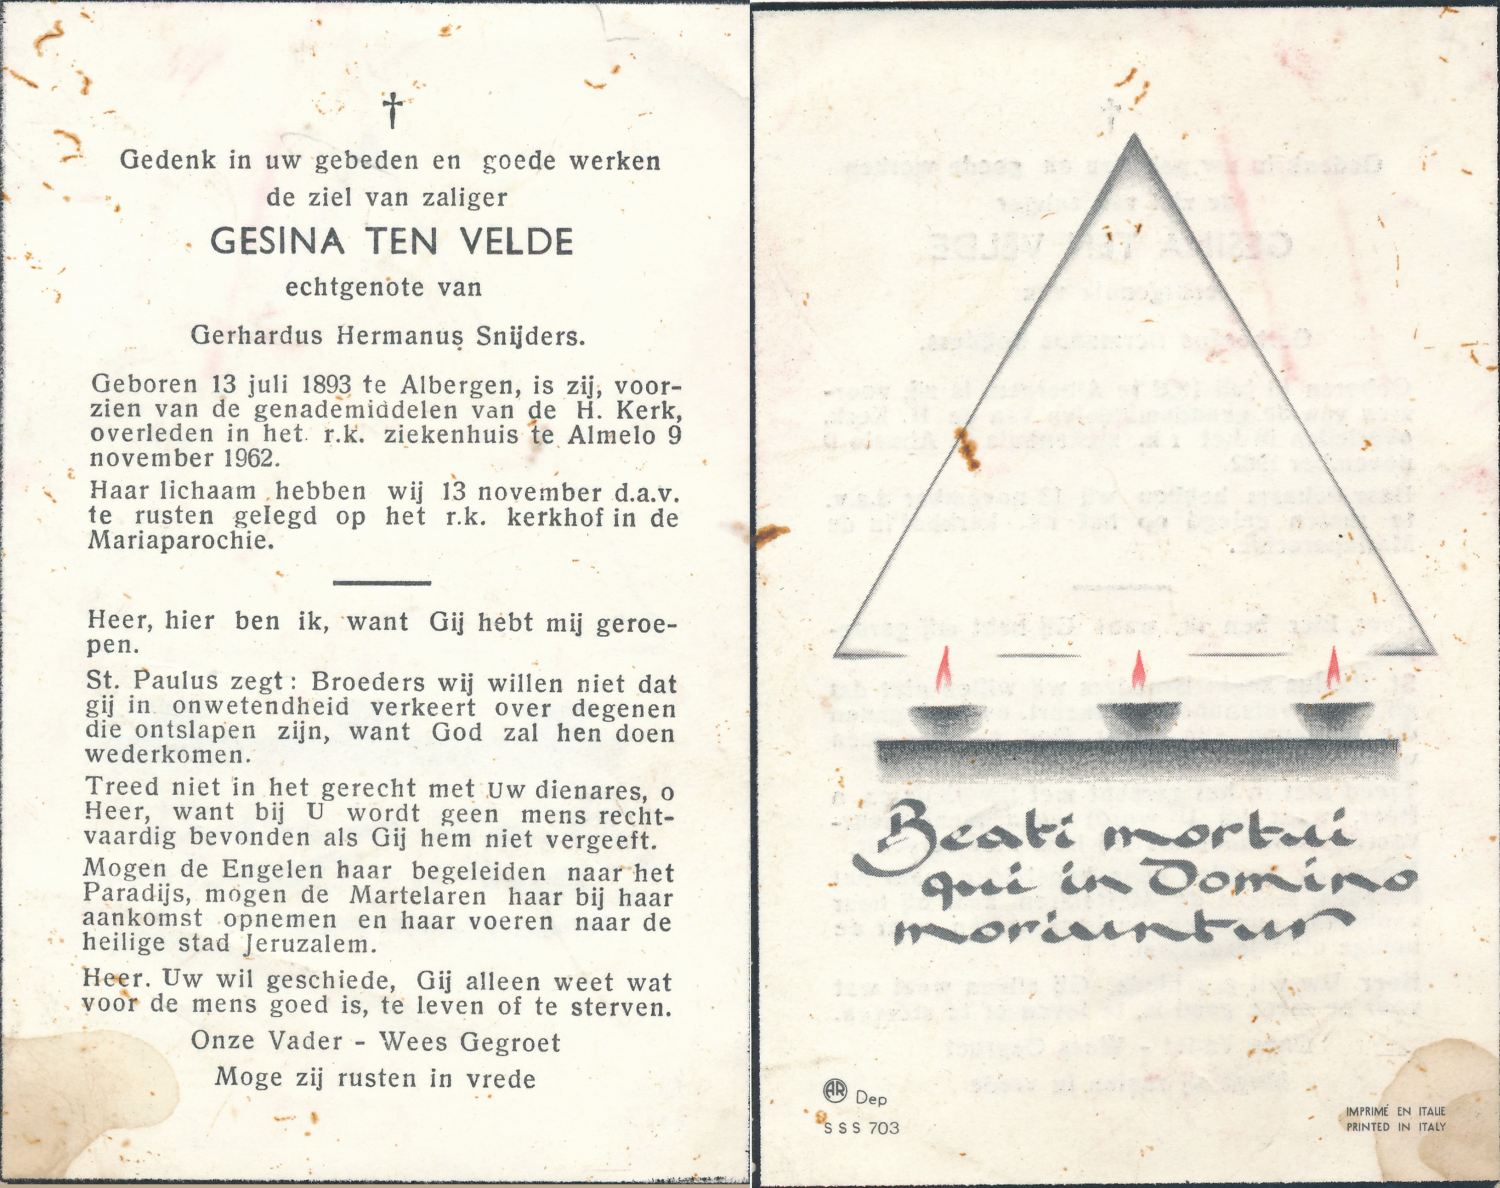 †
Gedenk in uw gebeden en goede werken
de ziel van zaliger
GESINA TEN VELDE
echtgenote van
Gerhardus Hermanus Snijders.
Geboren 13 juli 1893 te Albergen, is zij, voor-
zien van de genademiddelen van de H. Kerk,
overleden in het r.k. ziekenhuis te Almelo 9
november 1962.
Haar lichaam hebben wij 13 november d.a.v.
te rusten gelegd op het r.k. kerkhof in de
Mariaparochie.
Heer, hier ben ik, want Gij hebt mij geroe-
pen.
St. Paulus zegt: Broeders wij willen niet dat
gij in onwetendheid verkeert over degenen
die ontslapen zijn, want God zal hen doen
wederkomen.
Treed niet in het gerecht met Uw dienares, o
Heer, want bij U wordt geen mens recht-
vaardig bevonden als Gij hem niet vergeeft.
Mogen de Engelen haar begeleiden naar het
Paradijs, mogen de Martelaren haar bij haar
aankomst opnemen en haar voeren naar de
heilige stad Jeruzalem.
Heer. Uw wil geschiede, Gij alleen weet wat
voor de mens goed is, te leven of te sterven.
Onze Vader - Wees Gegroet
Moge zij rusten in vrede
Beati mortui
qui in Domino
moriuntur
AR Dep
SSS 703
IMPRIMÉ EN ITALIE
PRINTED IN ITALY